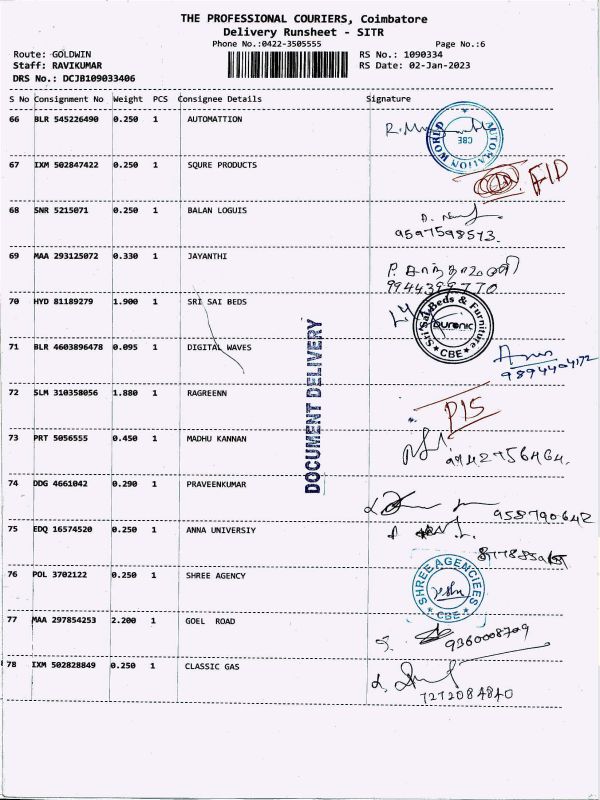 THE PROFESSIONAL COURIERS, Coimbatore
Delivery Runsheet - SITR
Phone No.:0422-3505555 Page No.:6
Route: GOLDWIN RS No.: 1090334
Staff: RAVIKUMAR RS Date: 02-Jan-2023
DRS No.: DCJB109033406
S No Consignment No Weight PCS Consignee Details Signature
66 BLR 545226490 0.250 1 AUTOMATTION
AUTOMATION WORLD CBE
67 IXM 502847422 0.250 1 SQURE PRODUCTS
68 SNR 5215071 0.250 1 BALAN LOGUIS
9597598573.
69 MAA 293125072 0.330 1 JAYANTHI
9944399770
70 HYD 81189279 1.900 1 SRI SAI BEDS
Sri Sai Beds & Furniture Duronic CBE
71 BLR 4603896478 0.095 1 DIGITAL WAVES
9894404172
DOCUMENT DELIVERY
72 SLM 310358056 1.880 1 RAGREENN
PIS
73 PRT 5056555 0.450 1 MADHU KANNAN
9942756464.
74 DDG 4661042 0.290 1 PRAVEENKUMAR
958790642
75 EDQ 16574520 0.250 1 ANNA UNIVERSIY
76 POL 3702122 0.250 1 SHREE AGENCY
SHREE AGENCIEES CBE
77 MAA 297854253 2.200 1 GOEL ROAD
9360008709
78 IXM 502828849 0.250 1 CLASSIC GAS
7272084840